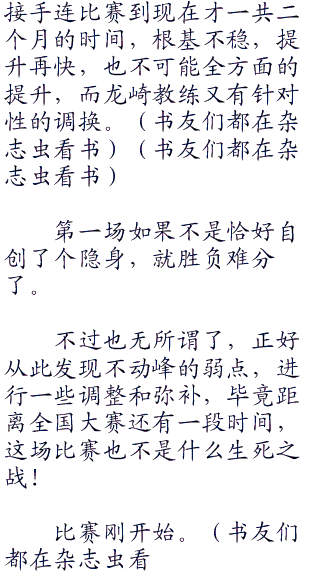 接手连比赛到现在才一共二
个月的时间，根基不稳，提
升再快，也不可能全方面的
提升，而龙崎教练又有针对
性的调换。（书友们都在杂
志虫看书）（书友们都在杂
志虫看书）
第一场如果不是恰好自
创了个隐身，就胜负难分
了。
不过也无所谓了，正好
从此发现不动峰的弱点，进
行一些调整和弥补，毕竟距
离全国大赛还有一段时间，
这场比赛也不是什么生死之
战！
比赛刚开始。（书友们
都在杂志虫看